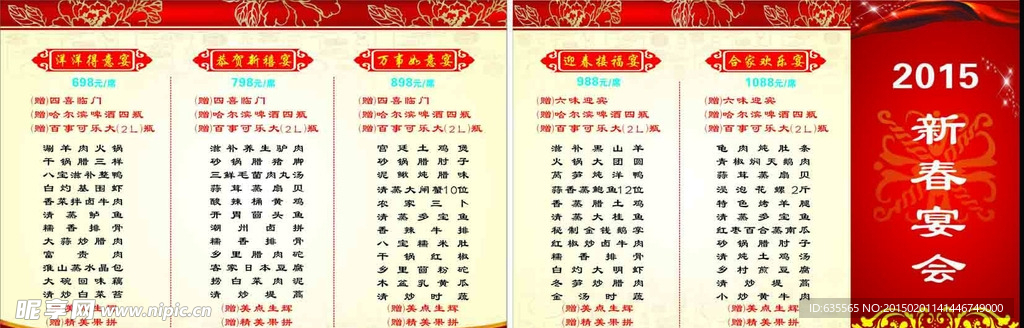 洋洋得意宴
698元/席
(赠)四喜临门
(赠)哈尔滨啤酒四瓶
(赠)百事可乐大(2L)瓶
涮羊肉火锅
干锅腊三样
八宝滋补整鸭
白灼基围虾
香菜拌卤牛肉
清蒸鲈鱼
糯香排骨
大蒜炒腊肉
富贵肉
淮山蒸水晶包
大碗回味藕
清炒白菜苔
(赠)精美果拼
恭贺新禧宴
798元/席
(赠)四喜临门
(赠)哈尔滨啤酒四瓶
(赠)百事可乐大(2L)瓶
滋补养生驴肉
砂锅腊猪脚
三鲜毛菌肉丸汤
蒜茸蒸扇贝
酸辣桶黄鸡
开胃茴头鱼
潮州卤拼
糯香排骨
乡里腊肉砣
客家日本豆腐
捞白菜肉泥
清炒时蔬
(赠)美点生辉
(赠)精美果拼
万事如意宴
898元/席
(赠)四喜临门
(赠)哈尔滨啤酒四瓶
(赠)百事可乐大(2L)瓶
宫廷土鸡煲
砂锅腊肘子
泥鳅炖腊味
清蒸大闸蟹10位
农家三卜
清蒸多宝鱼
香辣牛排
八宝糯米肚
干锅红椒
乡里茴粉砣
木盆乳黄瓜
清炒时蔬
(赠)美点生辉
(赠)精美果拼
迎春接福宴
988元/席
(赠)六味迎宾
(赠)哈尔滨啤酒四瓶
(赠)百事可乐大(2L)瓶
滋补黑山羊
火锅大团圆
莴笋炖洋鸭
蒜香蒸鲍鱼12位
香蒸腊土鸡
清蒸大桂鱼
秘制金钱鹅掌
红椒炒卤牛肉
白灼大明虾
冬笋炒腊肉
金汤时蔬
(赠)美点生辉
(赠)精美果拼
合家欢乐宴
1088元/席
(赠)六味迎宾
(赠)哈尔滨啤酒四瓶
(赠)百事可乐大(2L)瓶
龟肉炖肚条
青椒焖天鹅肉
蒜茸蒸扇贝
浸泡花螺2斤
特色烤羊腿
清蒸多宝鱼
红枣百合蒸南瓜
砂锅腊肘子
清炖土鸡汤
乡村煎豆腐
清炒时蔬
小炒黄牛肉
(赠)美点生辉
(赠)精美果拼
2015
新春宴会
昵享网 www.nipic.cn
ID:635565 NO:20150201141446749000